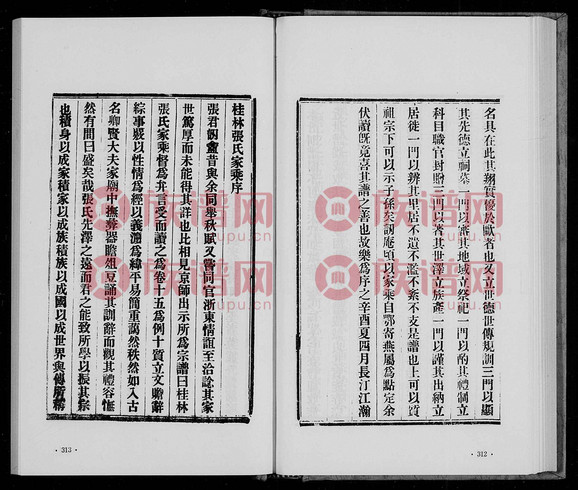 名具在此其翔實優於歐者也又立世德世傳規訓三門以顯
其先德立祠墓一門以審其地域立祭祀一門以酌其禮制立
科目職官封贈三門以著其世澤立族產一門以謹其出納立
居徙一門以辨其里居不遺不濫不紊不支是譜也上可以質
祖宗下可以示子孫矣訒庵頃以家乘自鄂寄燕屬為點定余
伏讀既竟喜其譜之善也故樂為序之辛酉夏四月長汀江瀚
· 312 ·
桂林張氏家乘序
張君訒盦昔與余同舉秋賦又嘗同官浙東情誼至洽諗其家
世篤厚而未能得其詳也比相見京師出示所為宗譜曰桂林
張氏家乘督為弁言受而讀之為卷十五為例十質立文贍辭
綜事覈以性情為經以義澹為緯平易簡重藹然秩然如入古
名卿賢大夫家廟中撫彝器瞻俎豆誦其訓辭而觀其禮容愾
然有間曰盛矣哉張氏先澤之遠而君之能致所學以振其宗
也積身以成家積家以成族積族以成國以成世界與傳所稱
· 313 ·
族谱网
zupu.cn